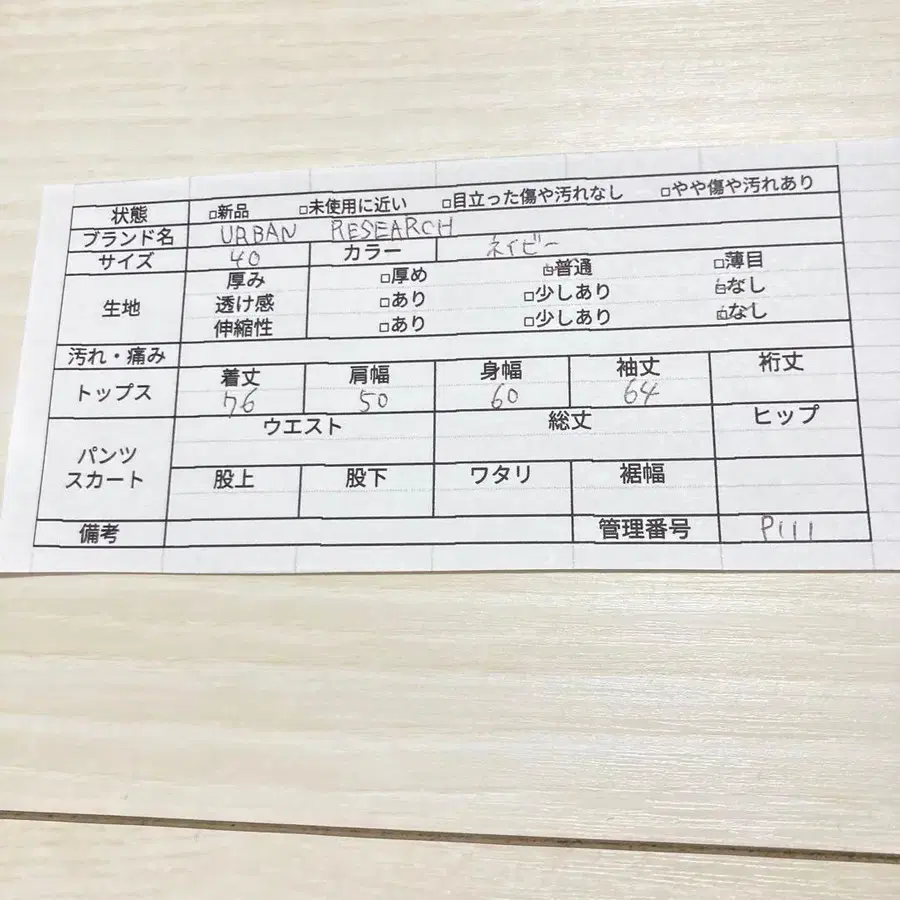 状態 □新品 □未使用に近い □目立った傷や汚れなし □やや傷や汚れあり
ブランド名 URBAN RESEARCH
サイズ 40 カラー ネイビー
生地 厚み □厚め □普通 □薄目
透け感 □あり □少しあり □なし
伸縮性 □あり □少しあり □なし
汚れ・痛み
トップス 着丈 肩幅 身幅 袖丈 裄丈
76 50 60 64
パンツ スカート ウエスト 総丈 ヒップ
股上 股下 ワタリ 裾幅
備考 管理番号 P111